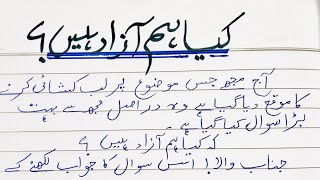 کیا ہم آزاد ہیں ؟
آج مجھ جس موضوع پر لب کشائی کرنے
کا موقع دیا گیا ہے وہ دراصل مجھ سے بہت
بڑا سوال کیا گیا ہے ۔
کہ کیا ہم آزاد ہیں ؟
جناب والا ! اس سوال کا جواب لکھنے کے